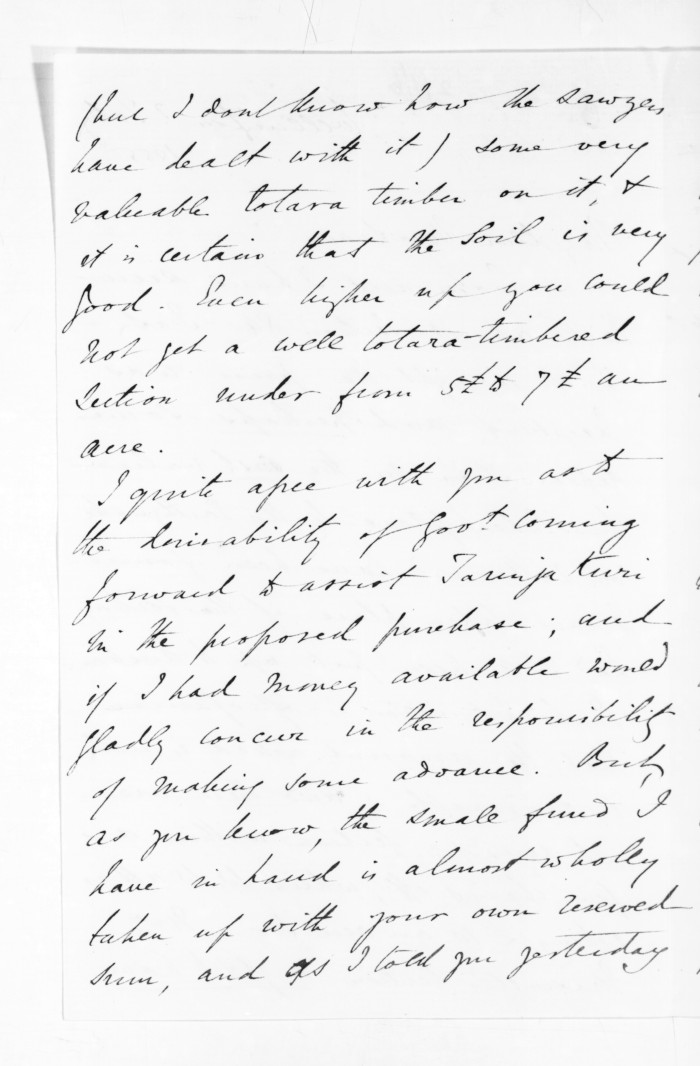 (but I dont know how the sawyers
have dealt with it) some very
valuable totara timber on it, &
it is certain that the Soil is very
good. Even higher up you could
not get a well totara-timbered
section under from 5£ to 7£ an
acre.
I quite agree with you as to
the desirability of Govt. coming
forward to assist Tareha Kuri
in the proposed purchase; and
if I had money available would
gladly concur in the responsibility
of making some advance. But,
as you know, the small fund I
have in hand is almost wholly
taken up with your own reserved
sum, and as I told you yesterday